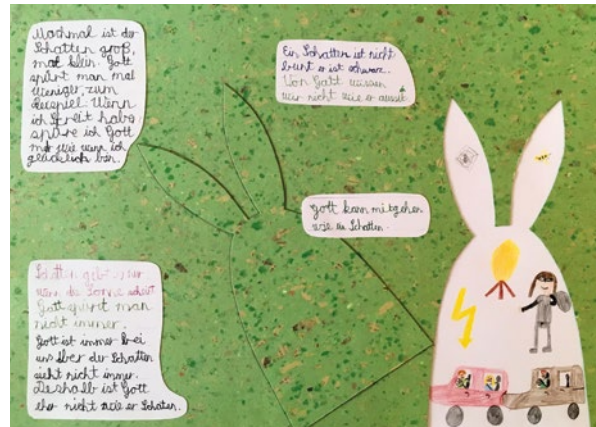 Machmal ist der
Schatten groß,
mal klein. Gott
spürt man mal
weniger zum
Beispiel: Wenn
ich Streit habe
spüre ich Gott
wie wenn ich
glücklich bin.
Ein Schatten ist nicht
bunt er ist schwarz.
Von Gott wissen
wir nicht wie er aussit
Gott kann mitgehen
wie ein Schatten.
Schatten gibt, nur
wenn die Sonne scheint
Gott spürt man
nicht immer.
Gott ist immer bei
uns Aber der Schatten
sieht nicht immer.
Deshalb ist Gott
eher nicht wie er Schaten.